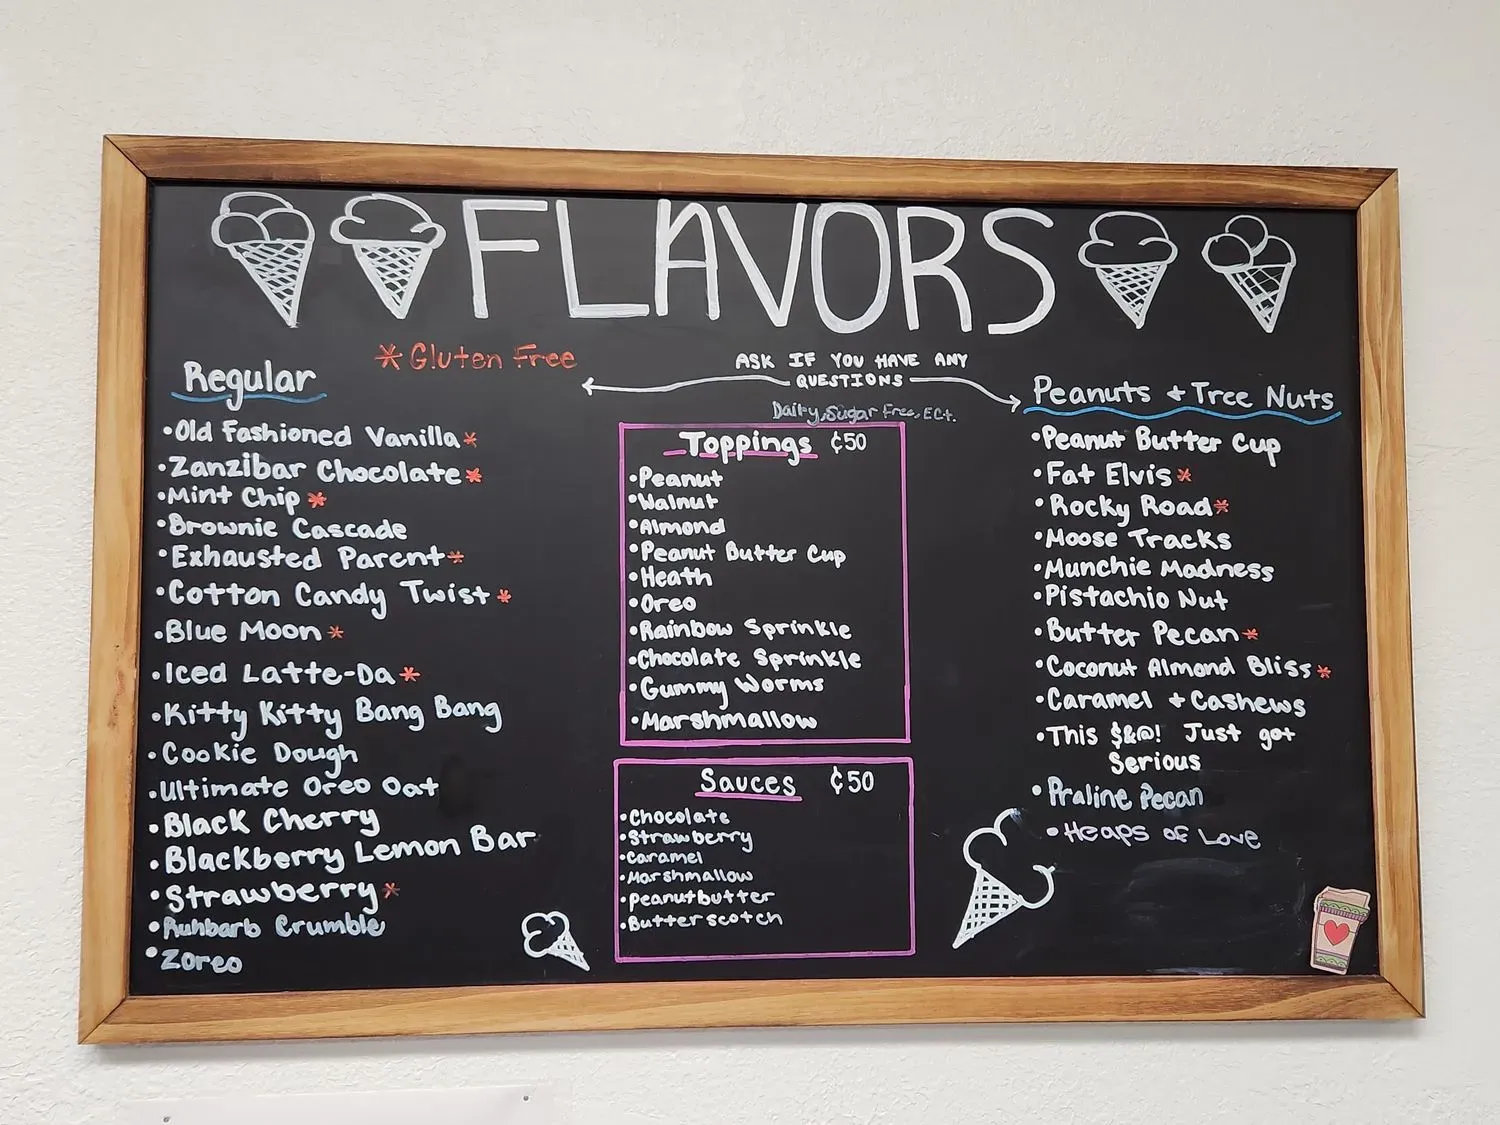 FLAVORS
* Gluten Free
Regular
• Old Fashioned Vanilla *
• Zanzibar Chocolate *
• Mint Chip *
• Brownie Cascade
• Exhausted Parent *
• Cotton Candy Twist *
• Blue Moon *
• Iced Latte-Da *
• Kitty Kitty Bang Bang
• Cookie Dough
• Ultimate Oreo Oat
• Black Cherry
• Blackberry Lemon Bar
• Strawberry *
• Ruhbarb Crumble
• Zoreo
ASK IF YOU HAVE ANY
QUESTIONS
Dairy, Sugar Free, Ect.
Toppings ¢50
• Peanut
• Walnut
• Almond
• Peanut Butter Cup
• Heath
• Oreo
• Rainbow Sprinkle
• Chocolate Sprinkle
• Gummy Worms
• Marshmallow
Sauces ¢50
• Chocolate
• Strawberry
• Caramel
• Marshmallow
• Peanutbutter
• Butterscotch
Peanuts + Tree Nuts
• Peanut Butter Cup
• Fat Elvis *
• Rocky Road *
• Moose Tracks
• Munchie Madness
• Pistachio Nut
• Butter Pecan *
• Coconut Almond Bliss *
• Caramel + Cashews
• This $&@! Just got
Serious
• Praline Pecan
• Heaps of Love